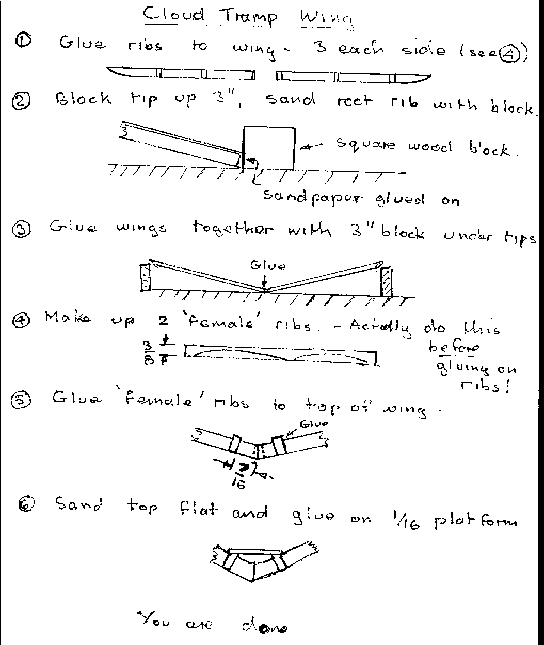 Cloud Tramp Wing
① Glue ribs to wing - 3 each side (see ④)
② Block tip up 3", sand root rib with block.
square wood block.
sandpaper glued on
③ Glue wings together with 3" block under tips
Glue
④ Make up 2 'female' ribs. - Actually do this
before
gluing on
ribs!
3
8
⑤ Glue 'female' ribs to top of wing.
Glue
16
⑥ Sand top flat and glue on 1/16 platform
You are done